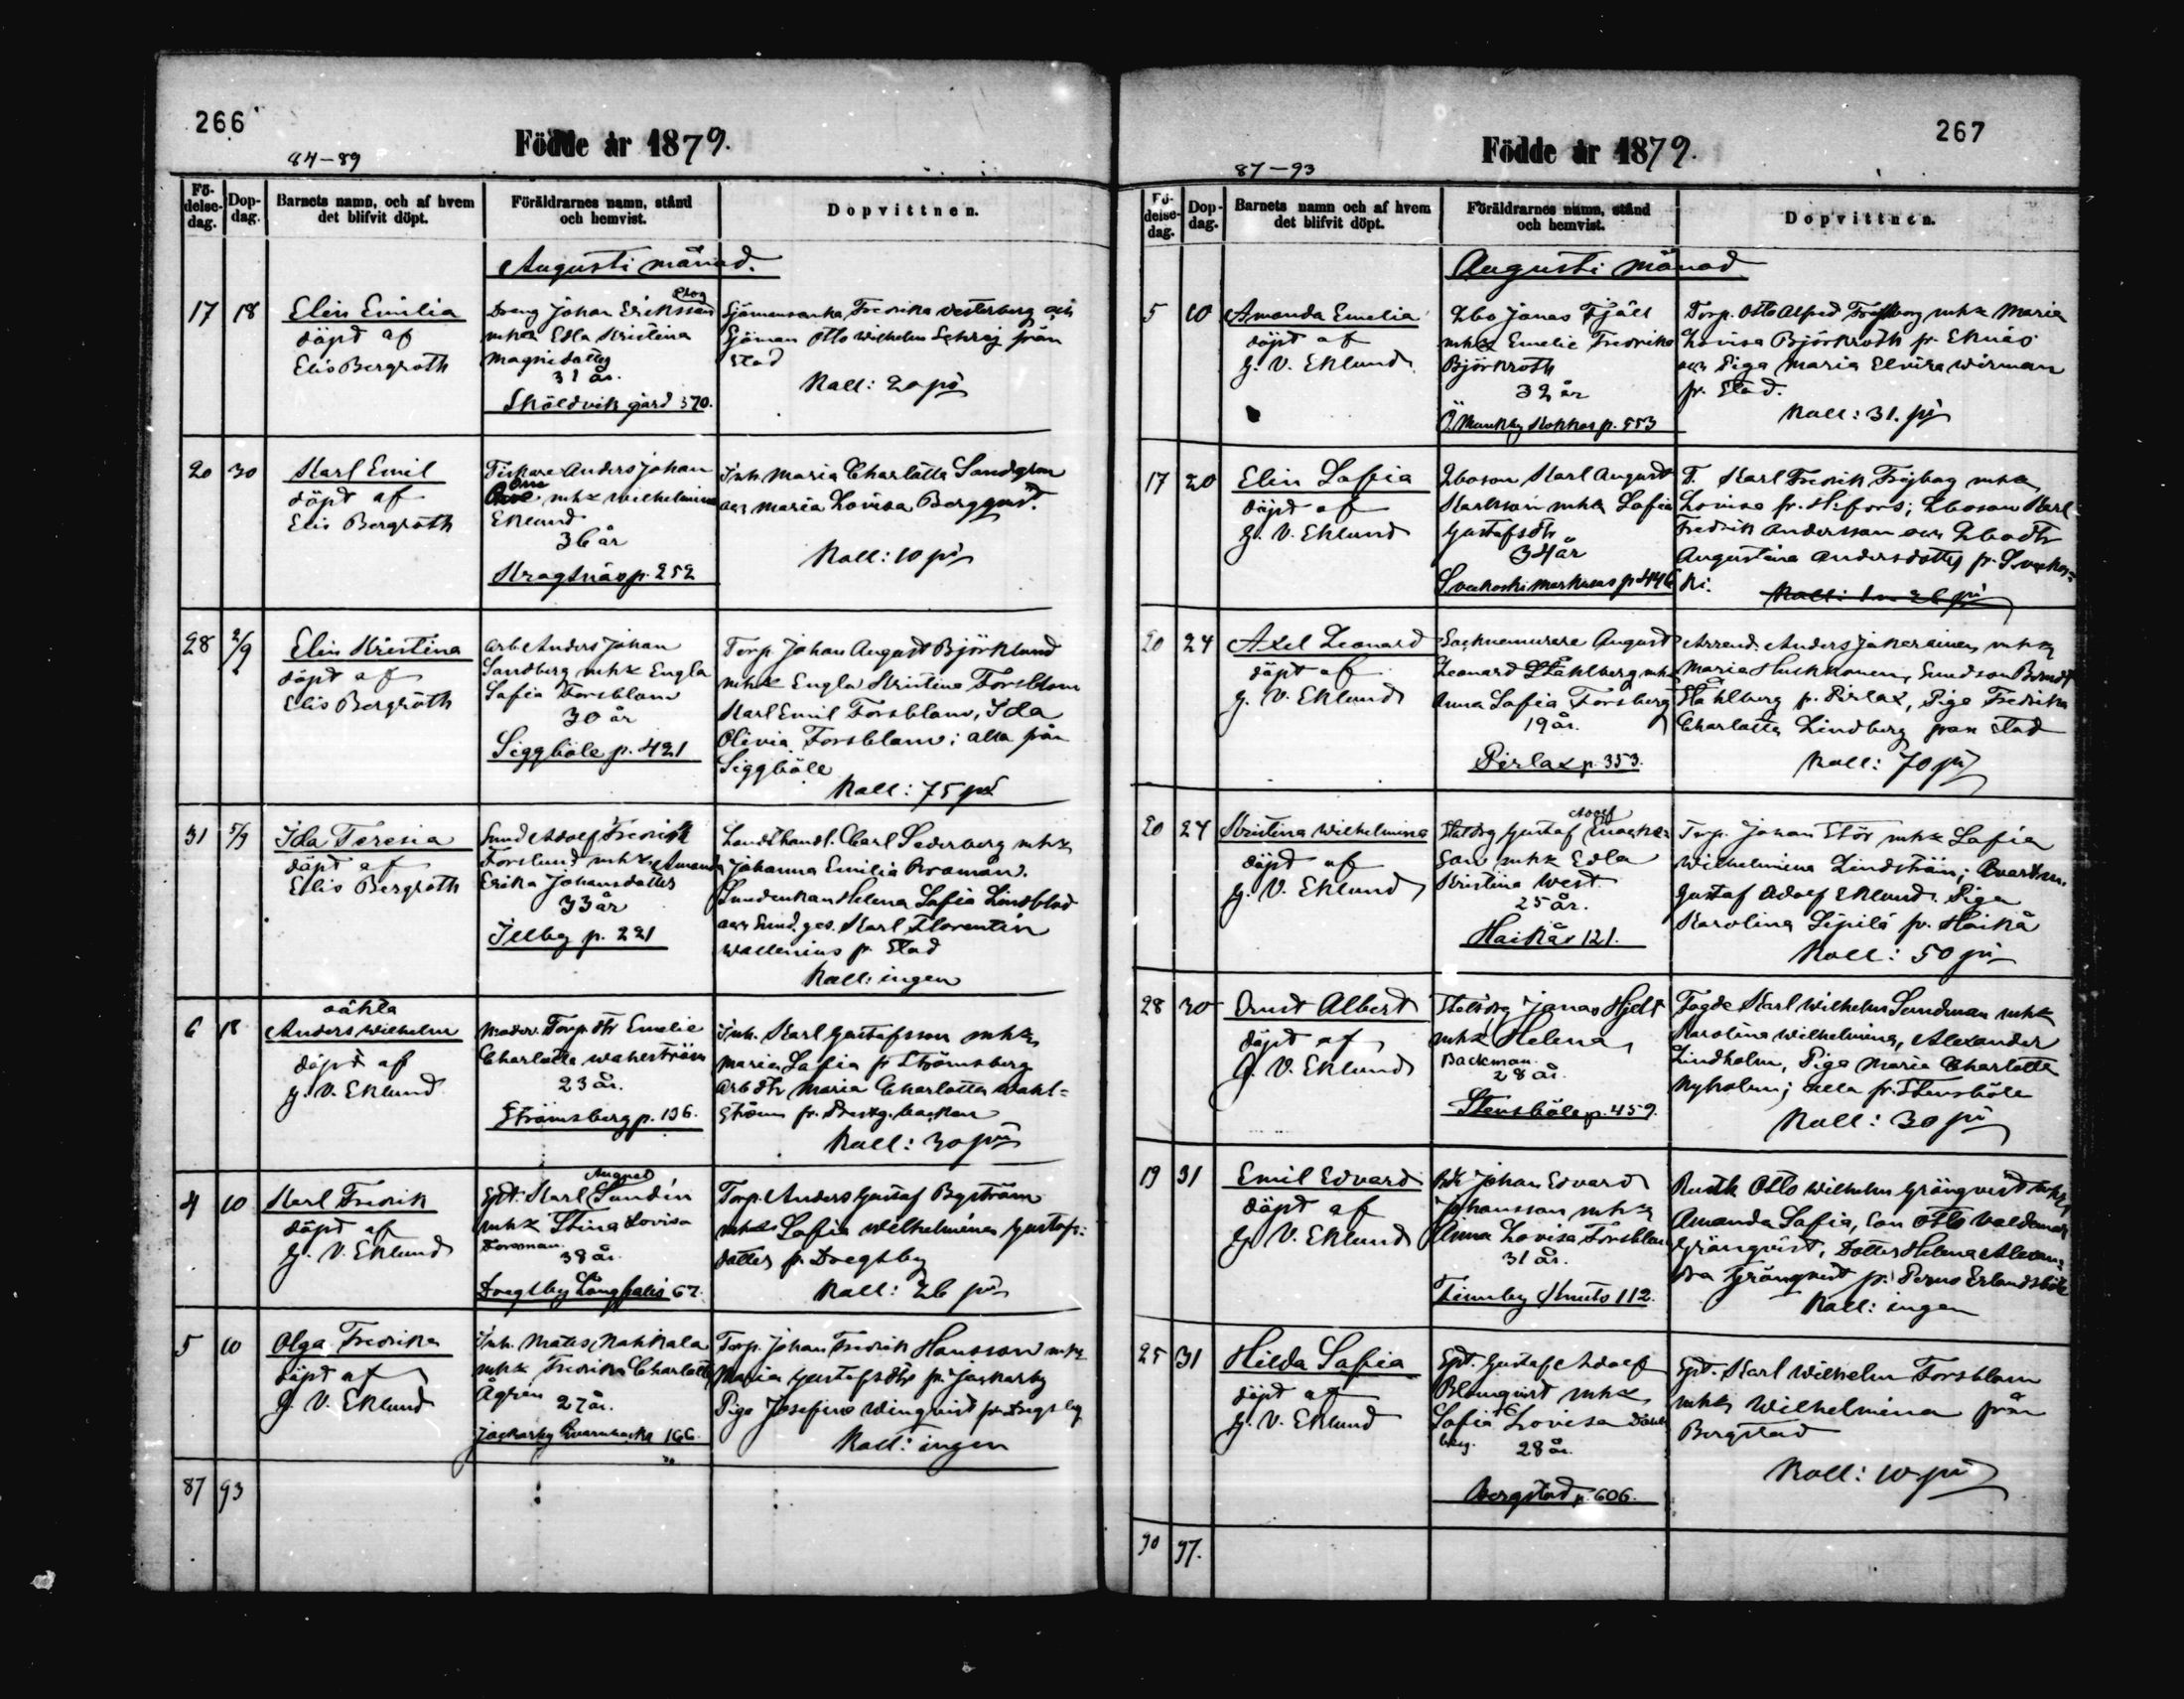 266
Födde år 1879.
84-89
Fö-
delse-
dag.
Dop-
dag.
Barnets namn, och af hvem
det blifvit döpt.
Föräldrarnes namn, stånd
och hemvist.
Dopvittnen.
Augusti månad.
17 18
Elin Emilia
döpt af
Elis Bergroth
Dreng Johan Eriksson
mhz Edla Kristina
Magnidotter
31 år.
Sköldvik gård 370.
Sjömansenka Fredrika Westerberg och
Sjöman Otto Wilhelm från
Stad
Koll: 20 pi
20 30
Karl Emil
döpt af
Elis Bergroth
Fiskare Anders Johan
mhz Wilhelmina
Eklund
36 år
Kragsnäs p. 252
Inh. Maria Charlotta Sandgren
och Maria Lovisa Bergqvist.
Koll: 10 pi
28 2/9
Elin Kristina
döpt af
Elis Bergroth
Arb. Anders Johan
Sandberg mhz Engla
Sofia Forsblom
30 år
Siggböle p. 421
Torp. Johan August Björklund
mhz Engla Kristina Forsblom
Karl Emil Forsblom, Ida
Olivia Forsblom; alla från
Siggböle
Koll: 75 pi
31 5/9
Ida Teresia
döpt af
Elis Bergroth
Smed Adolf Fredrik
Forslund mhz Amanda
Erika Johansdotter
33 år
Illby p. 221
Landthandl. Carl Sederberg mhz
Johanna Emilia Broman.
Smedenkan Helena Sofia Lindblad
och Smed. ges. Karl Florentin
Wallenius fr Stad
Koll: ingen
6 18
oäkta
Anders Wilhelm
döpt af
G. V. Eklund
Moder. Torp. dtr Emelie
Charlotta Wahlström
23 år.
Strömsberg p. 136.
Inh. Karl Gustafsson mhz
Maria Sofia fr Strömsberg
Arb dtr Maria Charlotta Wahl-
ström fr. backan
Koll: 30 pi
4 10
Karl Fredrik
döpt af
G. V. Eklund
August
Spt. Karl Sundin
mhz Stina Lovisa
Forsman
38 år.
Dregsby Långfalis 67.
Torp. Anders Gustaf Byström
mhz Sofia Wilhelmina Gustafs-
dotter fr. Dregsby
Koll: 26 pi
5 10
Olga Fredrika
döpt af
G. V. Eklund
Inh. Mats Nahkala
mhz Fredrika Charlotta
Ågren
27 år.
Jackarby Qvarnbacka 166.
Torp. Johan Fredrik Hansson mhz
Maria Gustafsdtr fr. Jackarby
Piga Josefina Winqvist fr Dregsby
Koll: ingen
87 93
267
Födde år 1879.
87-93
Fö-
delse-
dag.
Dop-
dag.
Barnets namn och af hvem
det blifvit döpt.
Föräldrarnes namn, stånd
och hemvist.
Dopvittnen.
Augusti månad
5 10
Amanda Emelia
döpt af
G. V. Eklund
Lbo Jonas Fjäll
mhz Emelie Fredrika
Björkroth
32 år
Ö. Munkby Kokkos p. 553
Torp. Otto Alfred mhz Maria
Lovisa Björkroth fr. Eknäs
och Piga Maria Elvira Wirman
fr. Stad.
Koll: 31. pi
17 20
Elin Sofia
döpt af
G. V. Eklund
Lboson Karl August
Karlsson mhz Sofia
Gustafsdtr
34 år
Svenkoski Markusas p 446
T. Karl Fredrik mhz
Lovisa fr. H:fors; Lboson Karl
Fredrik Andersson och Lbodtr
Augustina Andersdotter fr. Svenkos-
ki.
20 24
Axel Leonard
döpt af
G. V. Eklund
August
Leonard Ståhlberg mhz
Anna Sofia Forsberg
19 år.
Pirlax p. 353.
Arrend. Anders Jakarainen mhz
Maria Huhkonen, Smedson
Ståhlberg fr. Pirlax, Piga Fredrika
Charlotta Lindberg från Stad
Koll: 70 pi
20 24
Kristina Wilhelmina
döpt af
G. V. Eklund
Adolf
Statdrg Gustaf
son mhz Edla
Kristina West.
25 år.
Haikås 121.
Torp. Johan Stör mhz Sofia
Wilhelmina Lindström;
Gustaf Adolf Eklund. Piga
Karolina Sipilä fr. Haikå
Koll: 50 pi
28 30
Ernst Albert
döpt af
G. V. Eklund
Statdrg Jonas Hjelt
mhz Helena
Backman
28 år.
Stensböle p. 459.
Fogde Karl Wilhelm Sundman mhz
Karolina Wilhelmina, Alexander
Lindholm, Piga Maria Charlotta
Nyholm; alla fr. Stensböle
Koll: 30 pi
19 31
Emil Edvard
döpt af
G. V. Eklund
Johan Edvard
Johansson mhz
Anna Lovisa Forsblom
31 år.
Finnby Knuts 112.
Rusth Otto Wilhelm Grönqvist mhz
Amanda Sofia, Son Otto Valdemar
Grönqvist, Dotter Helena Alexan-
dra Grönqvist fr. Perno Erlandsböle
Koll: ingen
25 31
Hilda Sofia
döpt af
G. V. Eklund
Spt. Gustaf Adolf
Blomqvist mhz
Sofia Lovisa
berg.
28 år.
Borgstad p. 606.
Spt. Karl Wilhelm Forsblom
mhz Wilhelmina från
Borgstad
Koll: 10 pi
90 97.